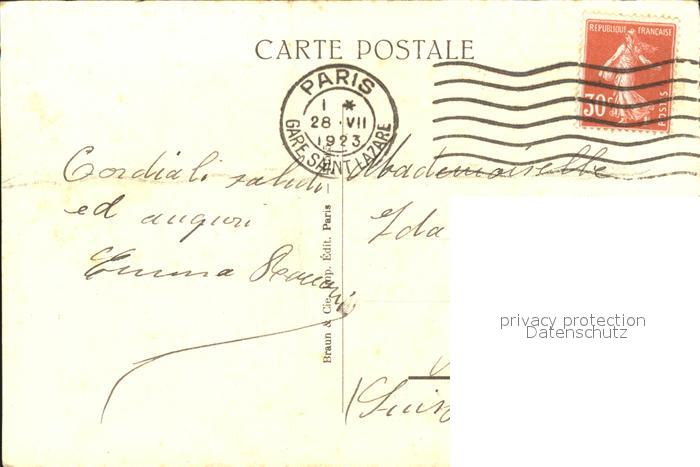 CARTE POSTALE
REPUBLIQUE FRANÇAISE
30c
POSTES
PARIS
1 *
28 · VII
1923
GARE SAINT-LAZARE
Cordiali saluti
ed auguri
Emma
Mademoiselle
Ida
Braun & Cie, Imp. Édit. Paris
privacy protection
Datenschutz